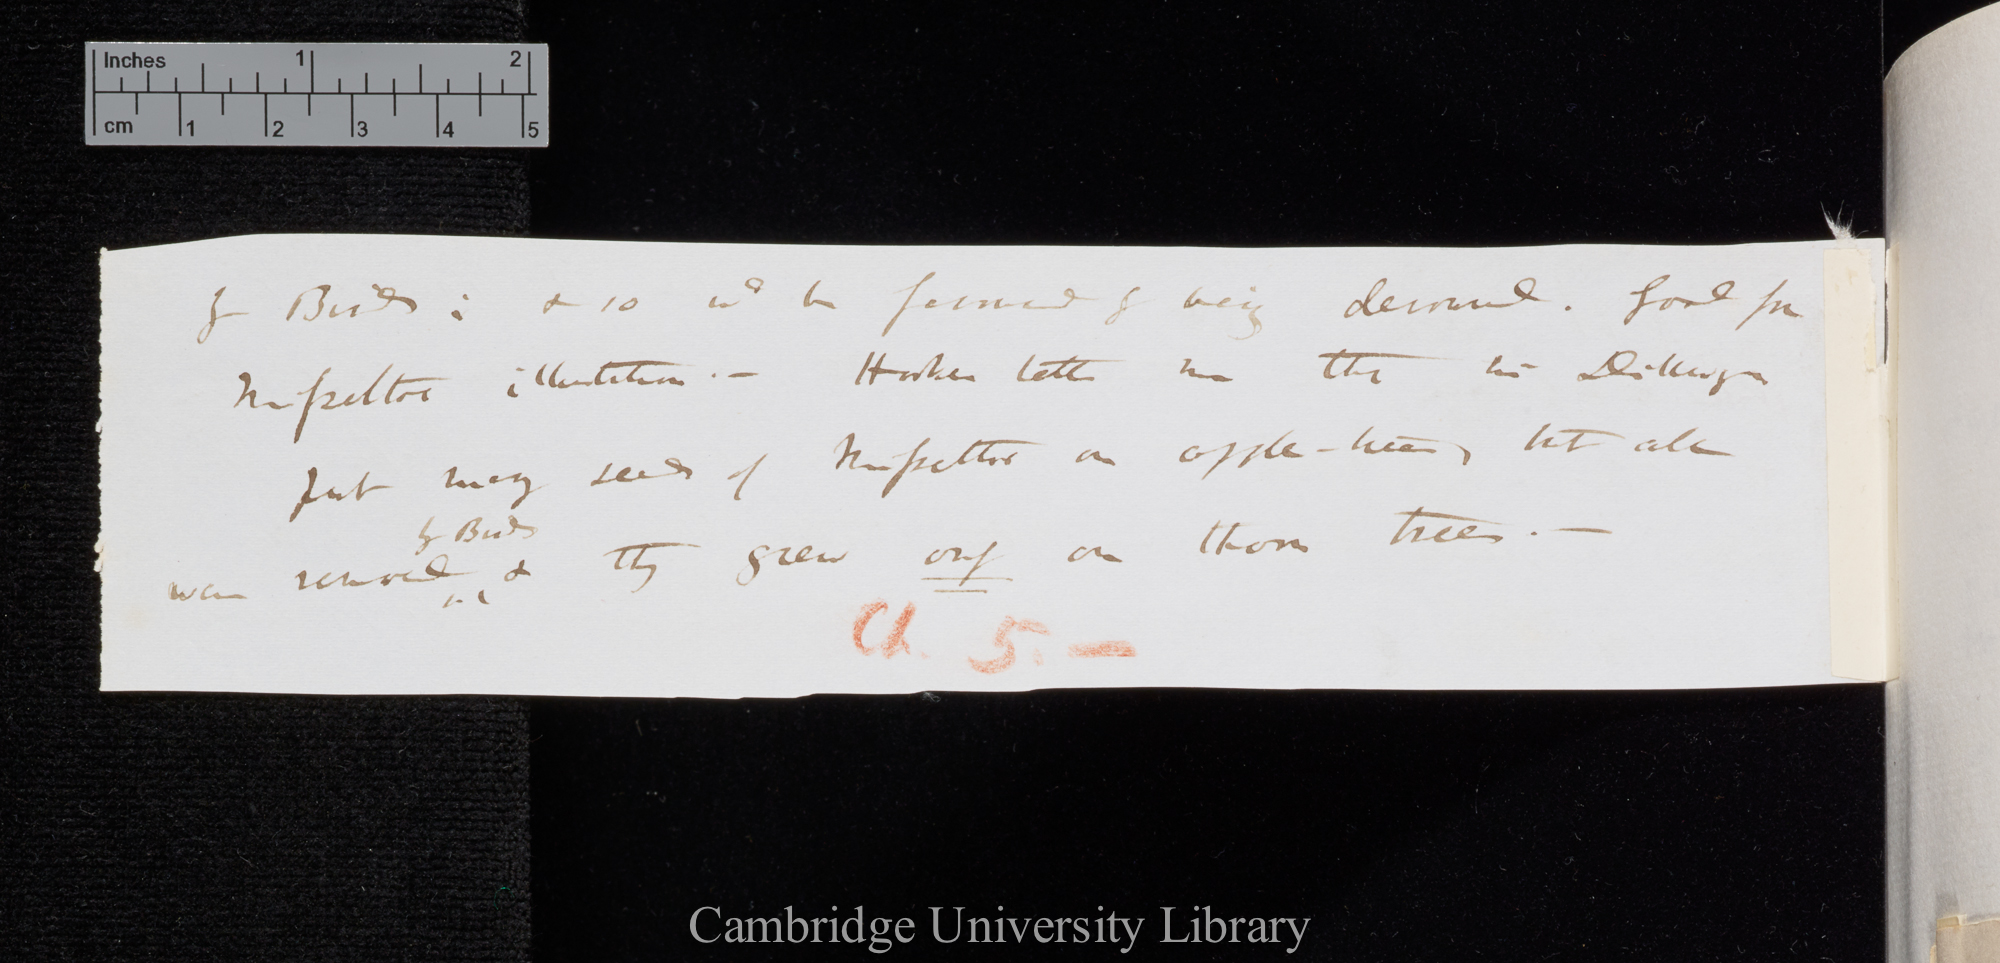 Inches 1 2
cm 1 2 3 4 5
by Birds; & so wd be favoured by being devoured. Good for
Misseltoe illustration.— Hooker tells me that his
put many seeds of Misseltoe on apple-trees, but all
by Birds
were removed & they grew only on thorn trees.—
Ch. 5.—
Cambridge University Library